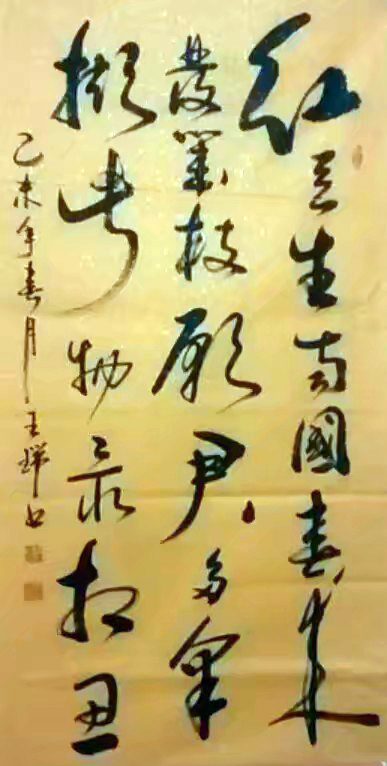 红豆生南國春来
發幾枝願君多采
撷此物最相思
乙未年春月王瑞书